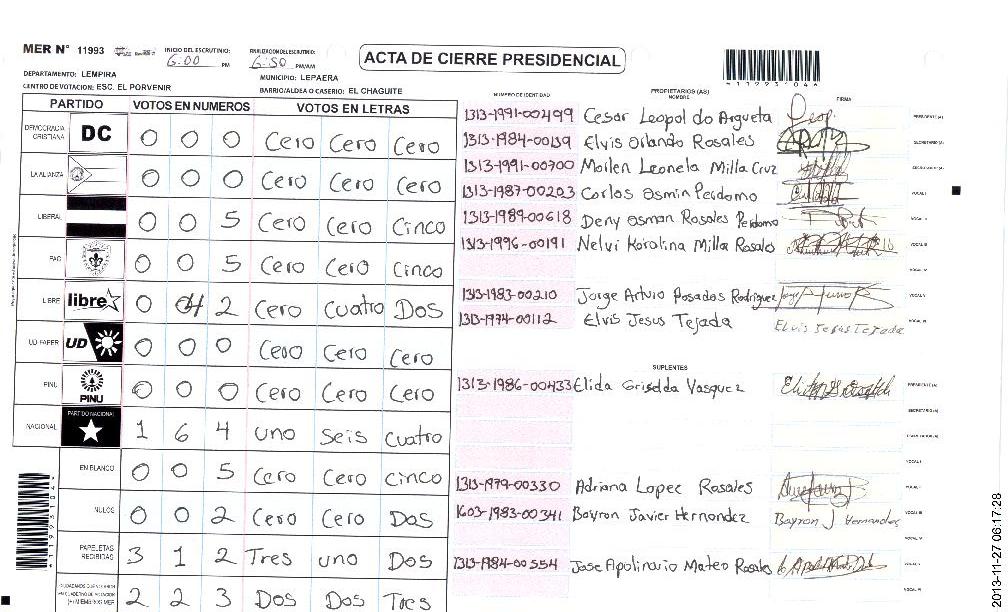 MER N° 11993
INICIO DEL ESCRUTINIO: 6:00 PM
FINALIZACION DEL ESCRUTINIO: 6:50 PM/AM
ACTA DE CIERRE PRESIDENCIAL
119931044
DEPARTAMENTO: LEMPIRA
MUNICIPIO: LEPAERA
CENTRO DE VOTACION: ESC. EL PORVENIR
BARRIO/ALDEA O CASERIO: EL CHAGUITE
PARTIDO VOTOS EN NUMEROS VOTOS EN LETRAS
DEMOCRACIA CRISTIANA DC 0 0 0 Cero Cero Cero
LA ALIANZA 0 0 0 Cero Cero Cero
LIBERAL 0 0 5 Cero Cero Cinco
PAC 0 0 5 Cero Cero Cinco
LIBRE libre 0 4 2 Cero Cuatro Dos
UD-FAPER UD 0 0 0 Cero Cero Cero
PINU PINU 0 0 0 Cero Cero Cero
NACIONAL PARTIDO NACIONAL 1 6 4 uno Seis Cuatro
EN BLANCO 0 0 5 Cero Cero cinco
NULOS 0 0 2 Cero Cero Dos
PAPELETAS RECIBIDAS 3 1 2 Tres uno Dos
2 2 3 Dos Dos Tres
NUMERO DE IDENTIDAD PROPIETARIOS (AS) NOMBRE FIRMA
1313-1991-00499 Cesar Leopoldo Argueta PRESIDENTE (A)
1313-1984-00139 Elvis Orlando Rosales SECRETARIO (A)
1313-1991-00700 Moilen Leonela Milla Cruz
1313-1987-00203 Carlos Osmin Perdomo VOCAL I
1313-1989-00618 Deny Osman Rosales Perdomo VOCAL II
1313-1996-00191 Nelvi Karolina Milla Rosales VOCAL III
VOCAL IV
1313-1983-00210 Jorge Arturo Posados Rodriguez VOCAL V
1313-1974-00112 Elvis Jesus Tejada Elvis Jesus Tejada VOCAL VI
SUPLENTES
1313-1986-00433 Elida Griselda Vasquez PRESIDENTE (A)
SECRETARIO (A)
VOCAL I
1313-1979-00330 Adriana Lopez Rosales
1603-1983-00341 Bayron Javier Hernandez Bayron J Hernandez VOCAL III
1313-1984-00554 Jose Apolinario Mateo Rosales
2013-11-27 06:17:28